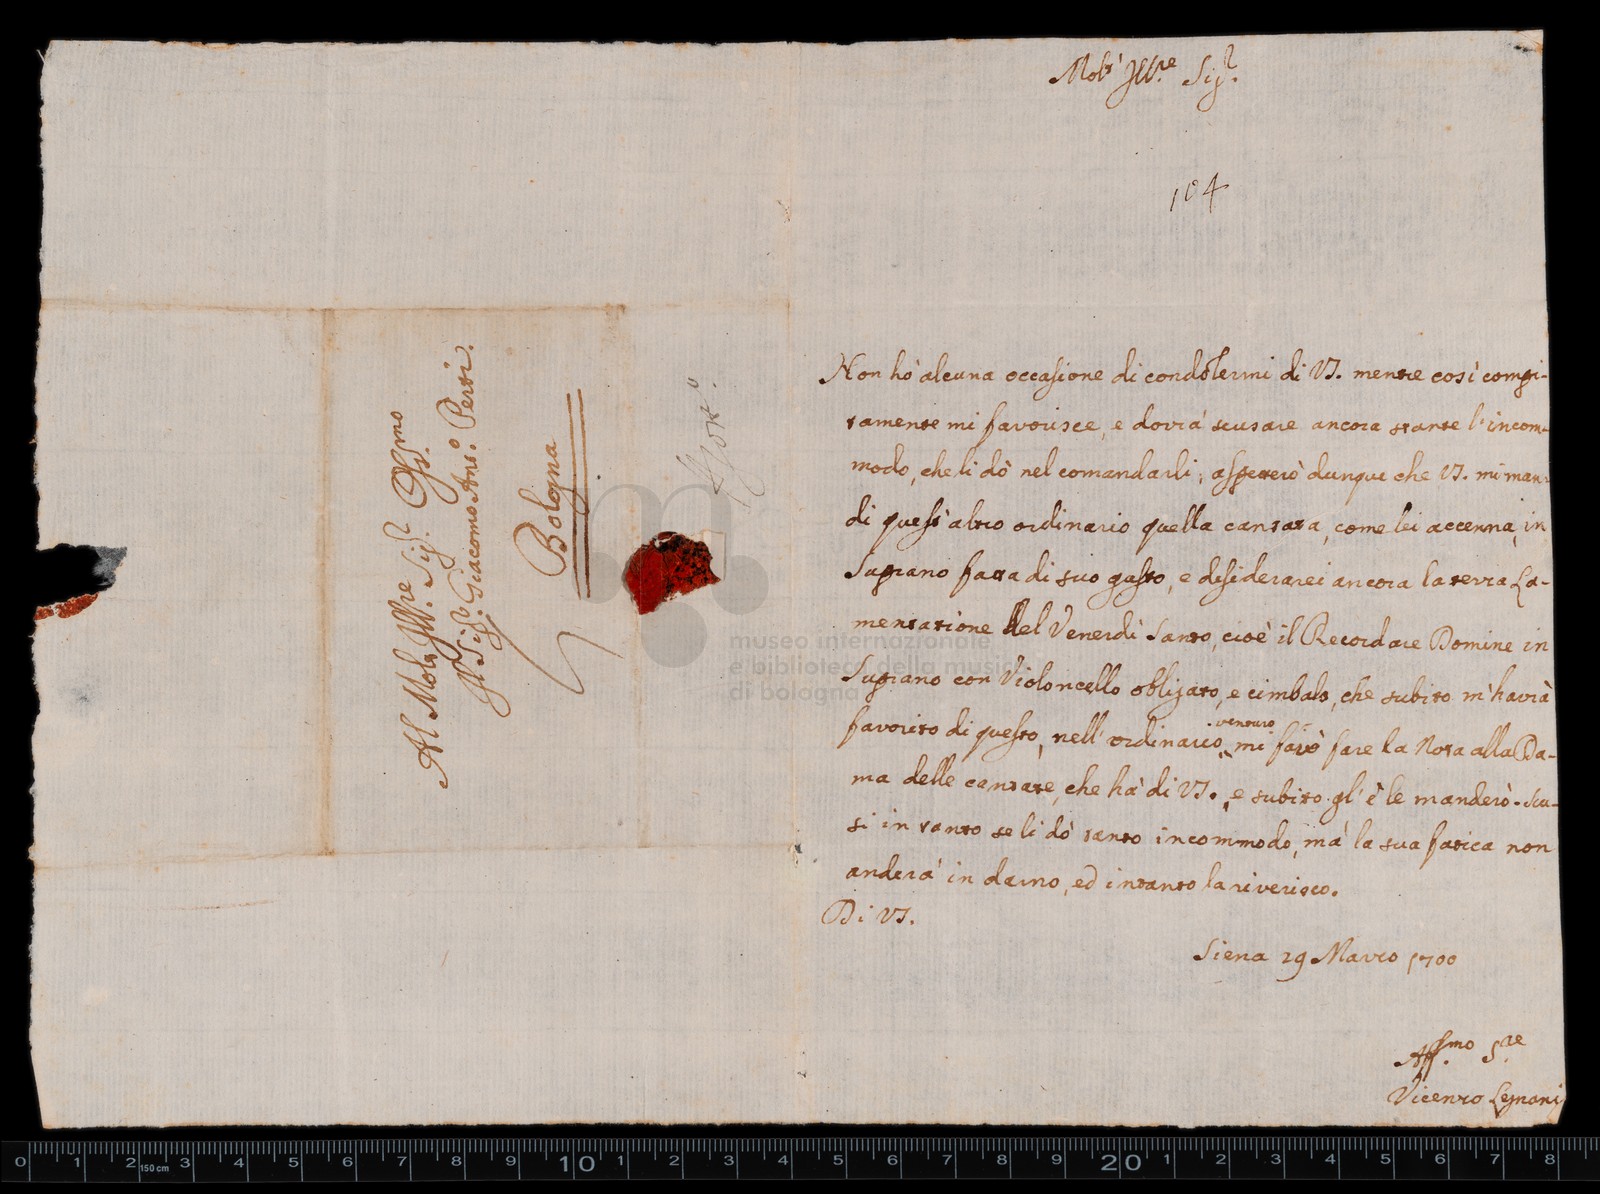 Molt' Ill.re Sig.r
104
Non hò alcuna occasione di condolermi di VS. mentre così compi-
tamente mi favorisce, e dovrà scusare ancora stante l'incom-
modo, che li dò nel comandarli; aspetterò dunque che VS. mi man-
di quest'altro ordinario quella cantata, come lei accenna, in
Suprano fatta di suo gusto, e desiderarei ancora la terza La-
mentatione del Venerdì Santo, cioè il Recordare Domine in
Suprano con Violoncello obligato, e cimbalo, che subito m'havrà
favorito di questo, nell'ordinario venturo mi farò fare la Nota alla Da-
ma delle cantate, che hà di VS., e subito gl'è le manderò. Scu-
si in tanto se li dò tanto incommodo, mà la sua fatica non
anderà in darno, ed intanto la riverisco.
Di VS.
Siena 29 Marzo 1700
Aff.mo S.re
Vicenzo Legnani
Al Molt Ill.re Sig.r Oss.mo
Il Sig.r Giacomo Ant.o Perti.
Bologna
museo internazionale
e biblioteca della musica
di bologna
0 1 2 150 cm 3 4 5 6 7 8 9 10 1 2 3 4 5 6 7 8 9 20 1 2 3 4 5 6 7 8